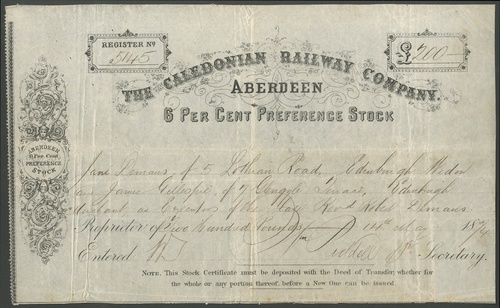 REGISTER No
5145
£200
THE CALEDONIAN RAILWAY COMPANY.
ABERDEEN
6 PER CENT PREFERENCE STOCK
ABERDEEN
6 Per Cent
PREFERENCE
STOCK
of 5 Lothian Road, Edinburgh
and James of 7 Edinburgh
Merchant as Executors of the late Revd
Proprietor of Two Hundred Pounds May 18
Entered Secretary.
NOTE. This Stock Certificate must be deposited with the Deed of Transfer, whether for
the whole or any portion thereof, before a New One can be issued